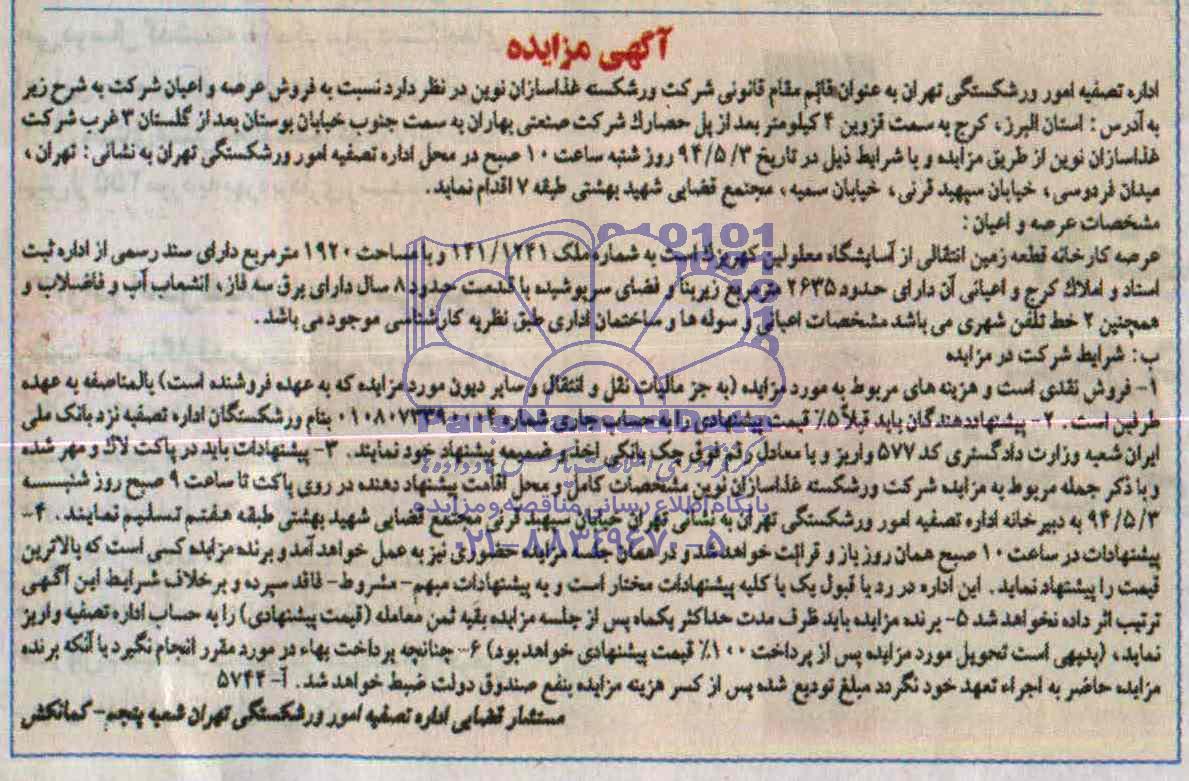 آگهی مزایده
اداره تصفیه امور ورشکستگی تهران به عنوان قائم مقام قانونی شرکت ورشکسته غذاسازان نوین در نظر دارد نسبت به فروش عرصه و اعیان شرکت به شرح زیر
به آدرس : استان البرز، کرج به سمت قزوین ۴ کیلومتر بعد از پل حصارک شرکت صنعتی بهاران به سمت جنوب خیابان بوستان بعد از گلستان ۳ غرب شرکت
غذاسازان نوین از طریق مزایده و با شرایط ذیل در تاریخ ۹۴/۵/۳ روز شنبه ساعت ۱۰ صبح در محل اداره تصفیه امور ورشکستگی تهران به نشانی : تهران ،
میدان فردوسی ، خیابان سپهبد قرنی ، خیابان سمیه ، مجتمع قضایی شهید بهشتی طبقه ۷ اقدام نماید .
مشخصات عرصه و اعیان :
عرصه کارخانه قطعه زمین انتقالی از آسایشگاه معلولین کهریزک است به شماره ملک ۱۴۱/۱۲۴۱ و با مساحت ۱۹۲۰ مترمربع دارای سند رسمی از اداره ثبت
اسناد و املاک کرج و اعیانی آن دارای حدود ۲۶۳۵ مترمربع زیربنا و فضای سرپوشیده با قدمت حدود ۸ سال دارای برق سه فاز، انشعاب آب و فاضلاب و
همچنین ۲ خط تلفن شهری می باشد مشخصات اعیانی و سوله ها و ساختمان اداری طبق نظریه کارشناسی موجود می باشد .
ب : شرایط شرکت در مزایده
۱- فروش نقدی است و هزینه های مربوط به مورد مزایده (به جز مالیات نقل و انتقال و سایر دیون مورد مزایده که به عهده فروشنده است) بالمناصفه به عهده
طرفین است . ۲- پیشنهاددهندگان باید قبلاً ۵٪ قیمت پیشنهادی را به حساب جاری شماره بنام ورشکستگان اداره تصفیه نزد بانک ملی
ایران شعبه وزارت دادگستری کد ۵۷۷ واریز و یا معادل رقم فوق چک بانکی اخذ و ضمیمه پیشنهاد خود نمایند . ۳- پیشنهادات باید در پاکت لاک و مهر شده
و با ذکر جمله مربوط به مزایده شرکت ورشکسته غذاسازان نوین مشخصات کامل و محل اقامت پیشنهاد دهنده در روی پاکت تا ساعت ۹ صبح روز شنبه
۹۴/۵/۳ به دبیرخانه اداره تصفیه امور ورشکستگی تهران به نشانی تهران خیابان سپهبد قرنی مجتمع قضایی شهید بهشتی طبقه هفتم تسلیم نمایند . ۴-
پیشنهادات در ساعت ۱۰ صبح همان روز باز و قرائت خواهد شد و در همان جلسه مزایده حضوری نیز به عمل خواهد آمد و برنده مزایده کسی است که بالاترین
قیمت را پیشنهاد نماید . این اداره در رد یا قبول یک یا کلیه پیشنهادات مختار است و به پیشنهادات مبهم- مشروط- فاقد سپرده و برخلاف شرایط این آگهی
ترتیب اثر داده نخواهد شد ۵- برنده مزایده باید ظرف مدت حداکثر یکماه پس از جلسه مزایده بقیه ثمن معامله (قیمت پیشنهادی) را به حساب اداره تصفیه واریز
نماید ، (بدیهی است تحویل مورد مزایده پس از پرداخت ۱۰۰٪ قیمت پیشنهادی خواهد بود) ۶- چنانچه پرداخت بهاء در مورد مقرر انجام نگیرد یا آنکه برنده
مزایده حاضر به اجراء تعهد خود نگردد مبلغ تودیع شده پس از کسر هزینه مزایده بنفع صندوق دولت ضبط خواهد شد . آ- ۵۷۴۴
مستشار قضایی اداره تصفیه امور ورشکستگی تهران شعبه پنجم- کمانکش
پایگاه اطلاع رسانی مناقصه و مزایده
۰۲۱-۸۸۳۴۹۶۷۰-۵